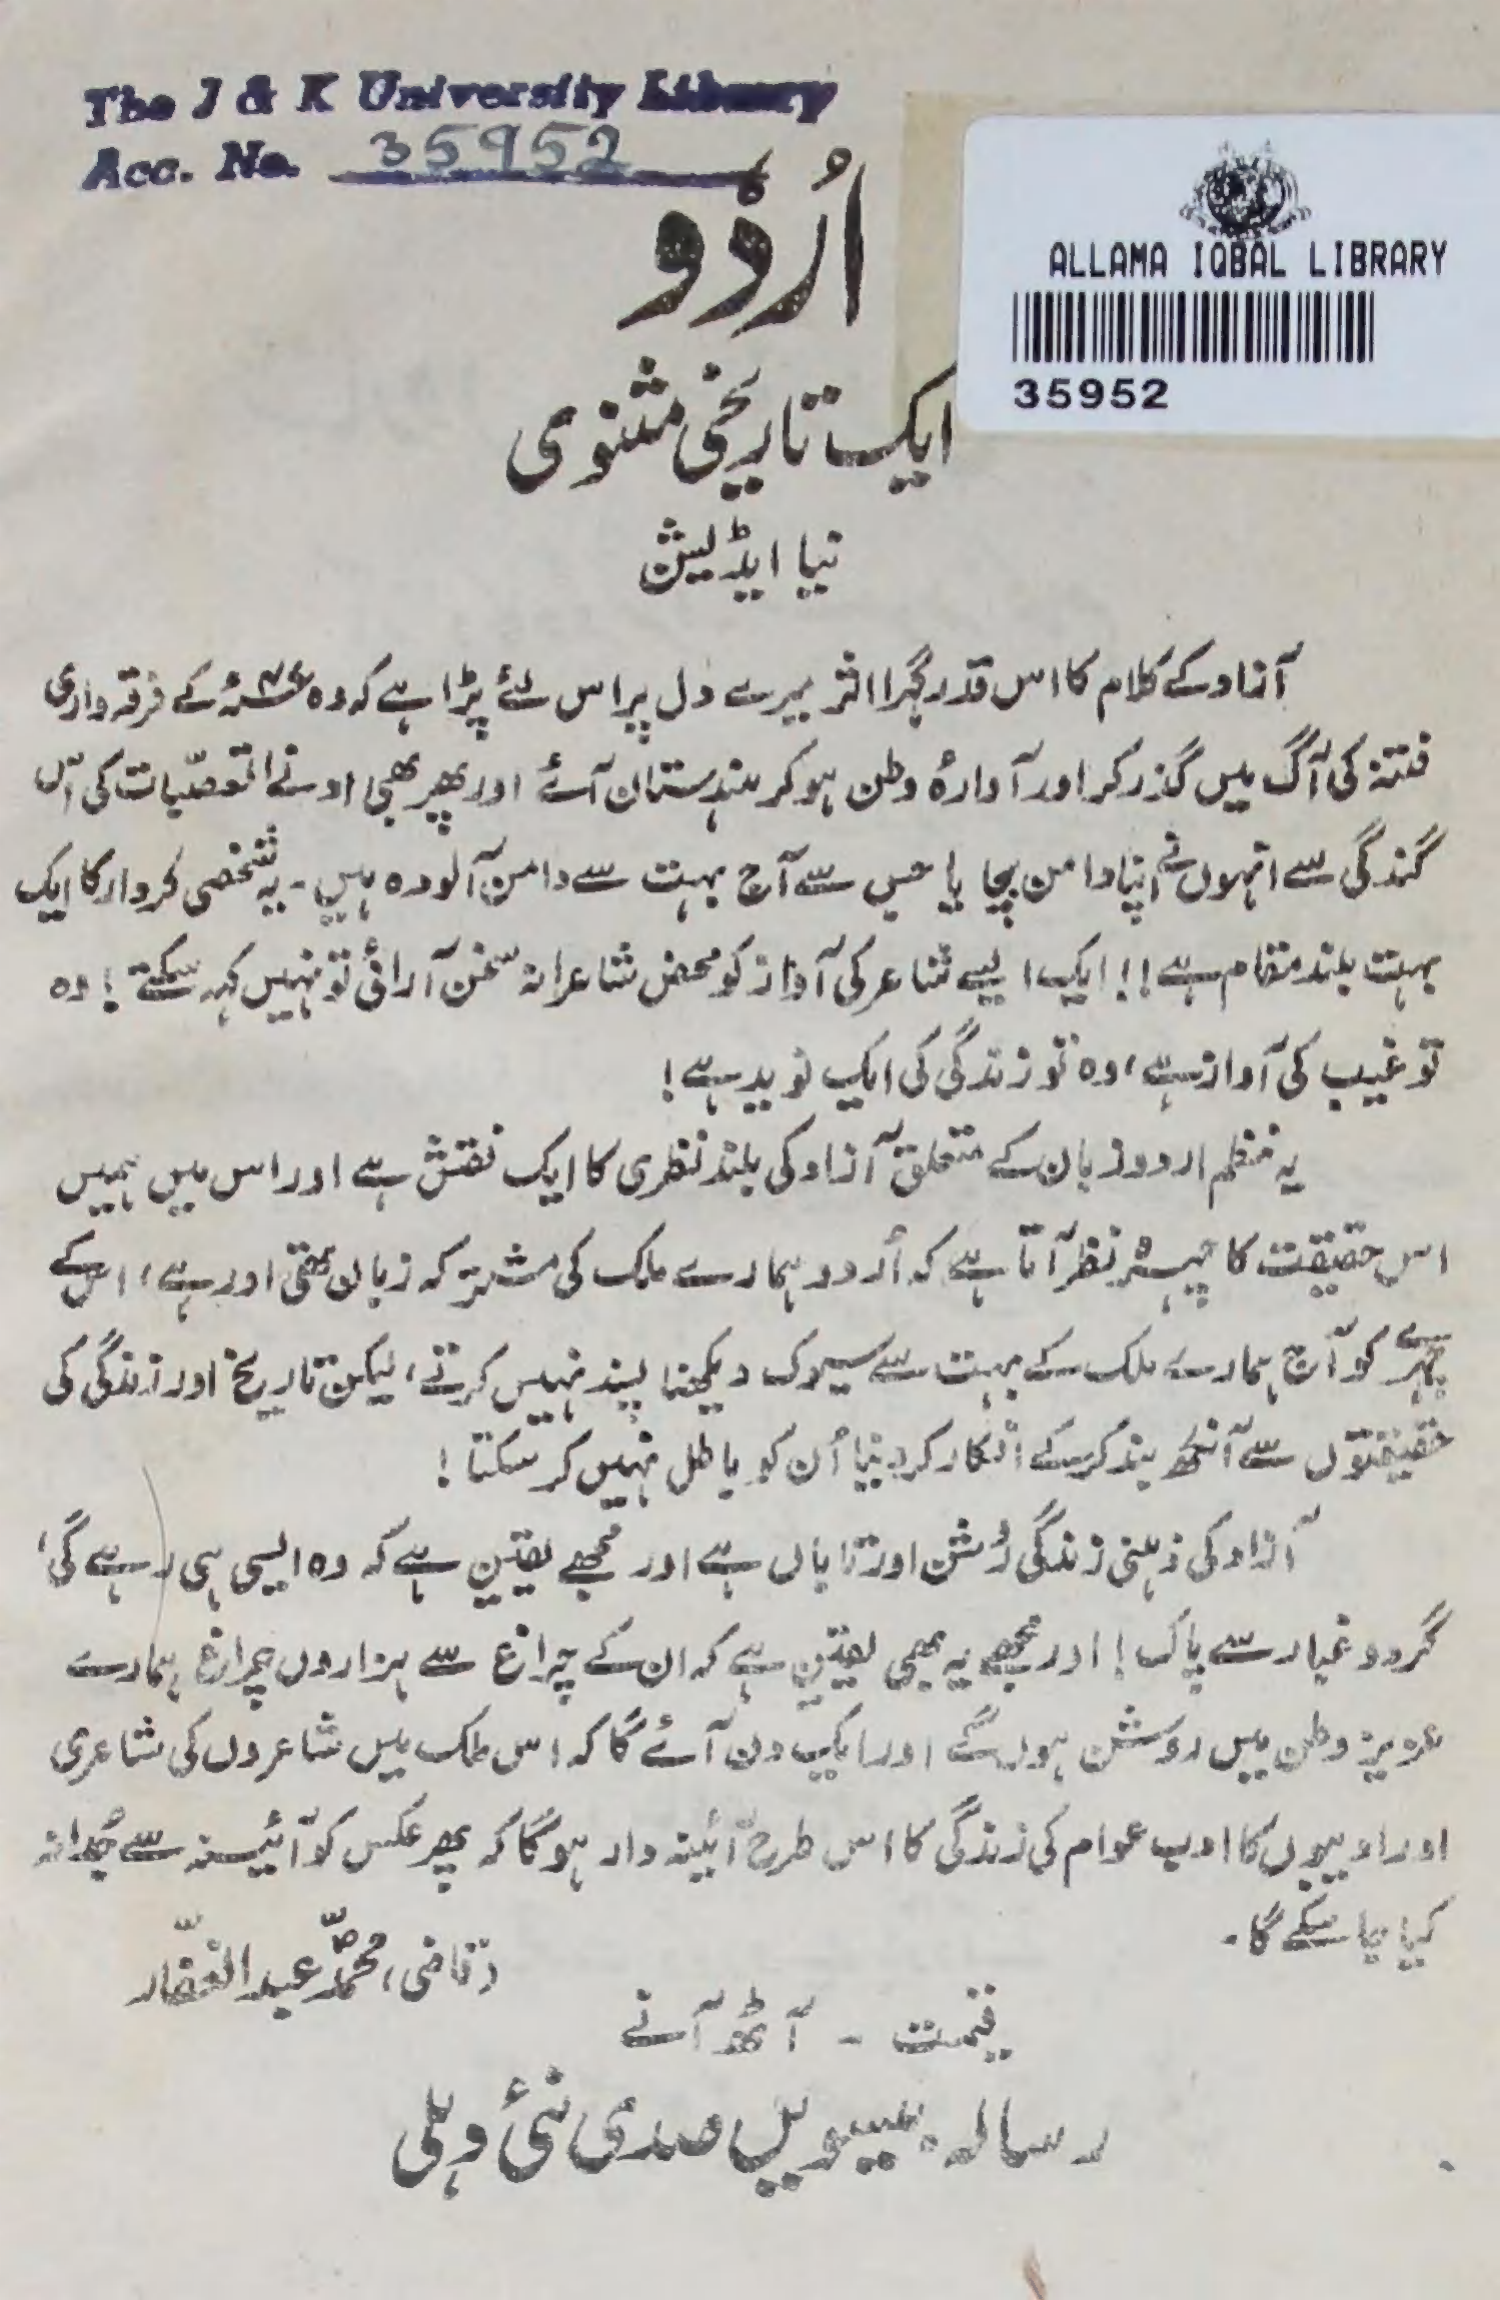 The J & K University Library
Acc. No. 35952
ALLAMA IQBAL LIBRARY
35952
اُردُو
ایک تاریخی مثنوی
نیا ایڈیشن
آزاد کے کلام کا اس قدر گہرا اثر میرے دل پر اس لئے پڑا ہے کہ وہ ۴۷ء کے فرقہ واری
فتنہ کی آگ میں گذر کر اور آوارۂ وطن ہو کر ہندستان آئے اور پھر بھی ادنےٰ تعصّبات کی اس
گندگی سے انہوں نے اپنا دامن بچا یا جس سے آج بہت سے دامن آلودہ ہیں ۔ یہ شخصی کردار کا ایک
بہت بلند مقام ہے !! ایک ایسے شاعر کی آواز کو محض شاعرانہ سخن آرائی تو نہیں کہہ سکتے ! وہ
تو غیب کی آواز ہے، وہ تو زندگی کی ایک نوید ہے !
یہ نظم اردو زبان کے متعلق آزاد کی بلند نظری کا ایک نقش ہے اور اس میں ہمیں
اس حقیقت کا چہرہ نظر آتا ہے کہ اُردو ہمارے ملک کی مشترکہ زبان تھی اور ہے، اس کے
چہرے کو آج ہمارے ملک کے بہت سے سیوک دیکھنا پسند نہیں کرتے، لیکن تاریخ اور زندگی کی
حقیقتوں سے آنکھ بند کر کے انکار کر دینا اُن کو باطل نہیں کر سکتا !
آزاد کی ذہنی زندگی رُشن اور تاباں ہے اور مجھے یقین ہے کہ وہ ایسی ہی رہے گی،
گرد و غبار سے پاک ! اور مجھے یہ بھی یقین ہے کہ ان کے چراغ سے ہزاروں چراغ ہمارے
عزیز وطن میں روشن ہوں گے اور ایک دن آئے گا کہ اس ملک میں شاعروں کی شاعری
اور ادیبوں کا ادب عوام کی زندگی کا اس طرح آئینہ دار ہوگا کہ پھر عکس کو آئینہ سے جُدا نہ
کیا جا سکے گا۔
(قاضی) محمدؐ عبد الغفّار
قیمت ۔ آٹھ آنے
رسالہ بیسویں صدی نئی دہلی